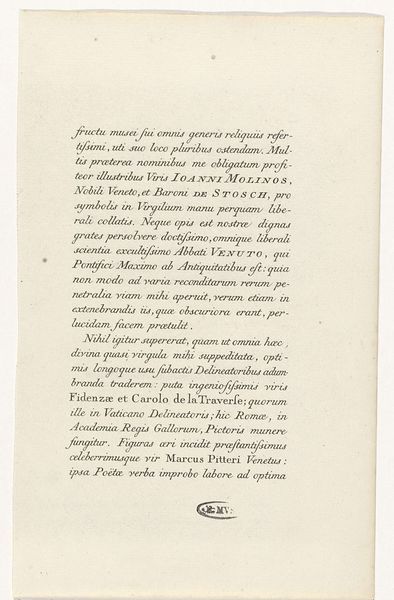 fructu musei sui omnis generis reliquiis refer-
tissimi, uti suo loco pluribus ostendam. Mul-
tis præterea nominibus me obligatum profi-
teor illustribus Viris IOANNI MOLINOS,
Nobili Veneto, et Baroni DE STOSCH, pro
symbolis in Virgilium manu perquam libe-
rali collatis. Neque opis est nostræ dignas
grates persolvere doctissimo, omnique liberali
scientia excultissimo Abbati VENUTO, qui
Pontifici Maximo ab Antiquitatibus est: quia
non modo ad varia reconditarum rerum pe-
netralia viam mihi aperuit, verum etiam in
extenebrandis iis, quæ obscuriora erant, per-
lucidam facem prætulit.
Nihil igitur supererat, quam ut omnia hæc,
divina quasi virgula mihi suppeditata, opti-
mis longoque usu subactis Delineatoribus adum-
branda traderem: puta ingeniosissimis viris
Fidenzæ et Carolo de la Traverse; quorum
ille in Vaticano Delineatoris; hic Romæ, in
Academia Regis Gallorum, Pictoris munere
fungitur. Figuras æri incidit præstantissimus
celeberrimusque vir Marcus Pitteri Venetus:
ipsa Poëtæ verba improbo labore ad optima
R. MV: